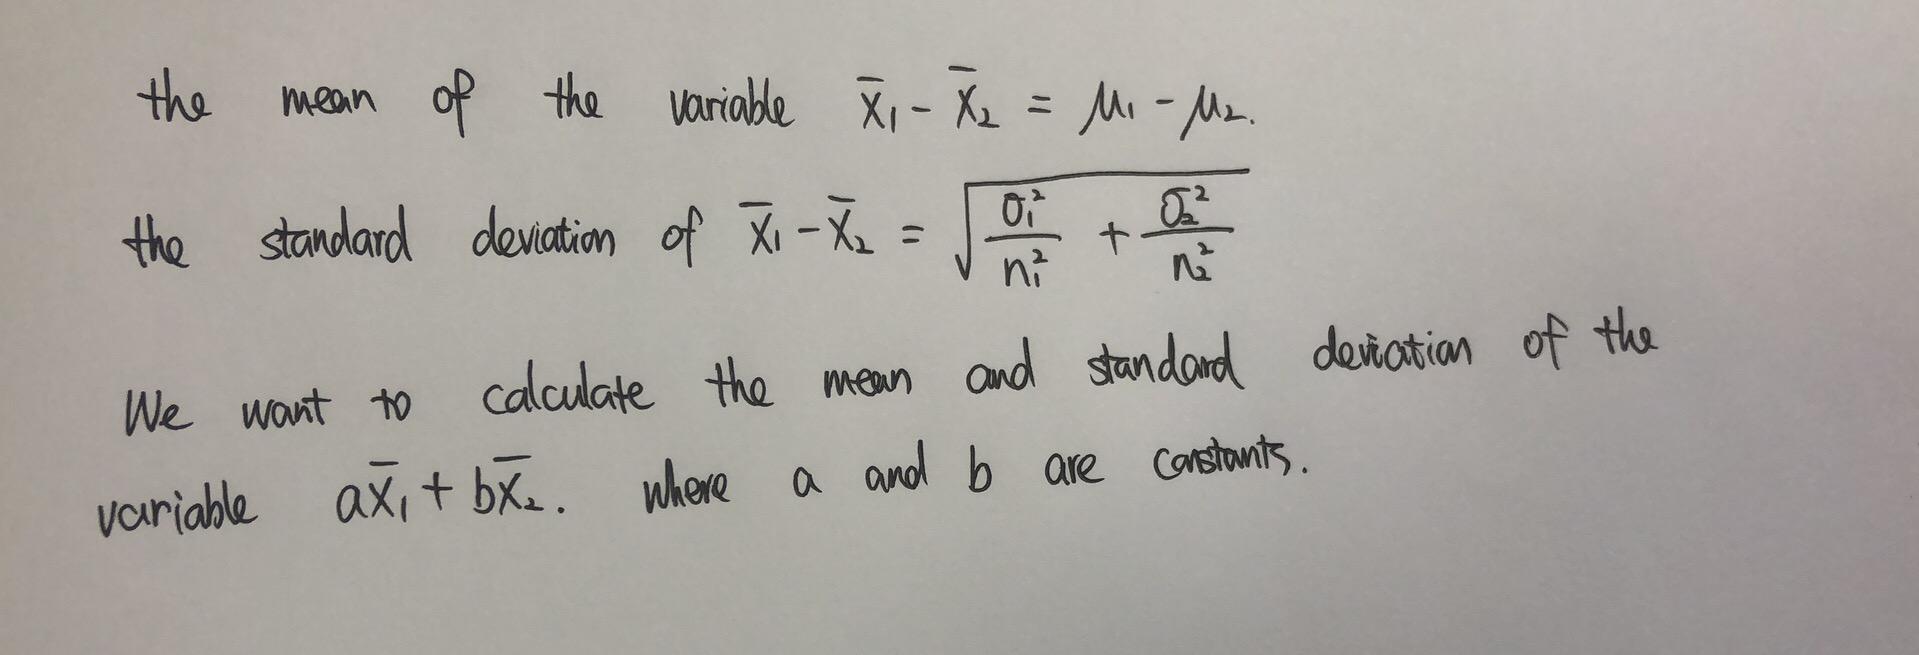 the mean of the variable x̄₁ - x̄₂ = μ₁ - μ₂.
the standard deviation of x̄₁ - x̄₂ = √(σ₁²/n₁² + σ₂²/n₂²)
We want to calculate the mean and standard deviation of the
variable ax̄₁ + bx̄₂. where a and b are constants.